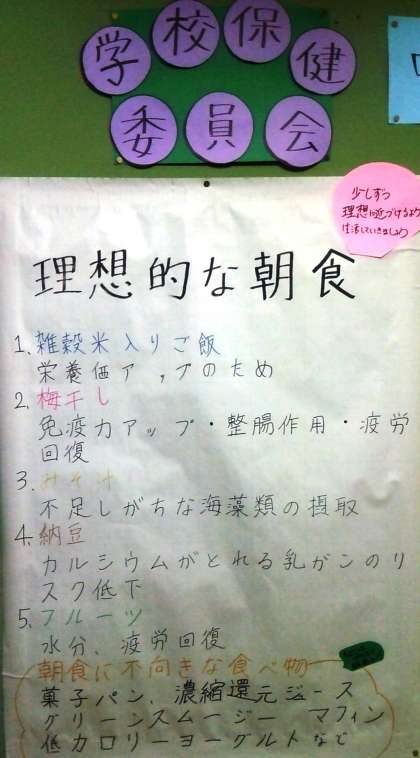 学校保健
委員会
少しずつ
理想に近づけるよう
生活していきましょう
理想的な朝食
1.雑穀米入りご飯
栄養価アップのため
2.梅干し
免疫力アップ・整腸作用・疲労
回復
3.みそ汁
不足しがちな海藻類の摂取
4.納豆
カルシウムがとれる乳がンのリ
スク低下
5.フルーツ
水分、疲労回復
朝食に不向きな食べ物
菓子パン、濃縮還元ジュース
グリーンスムージー マフィン
低カロリーヨーグルトなど